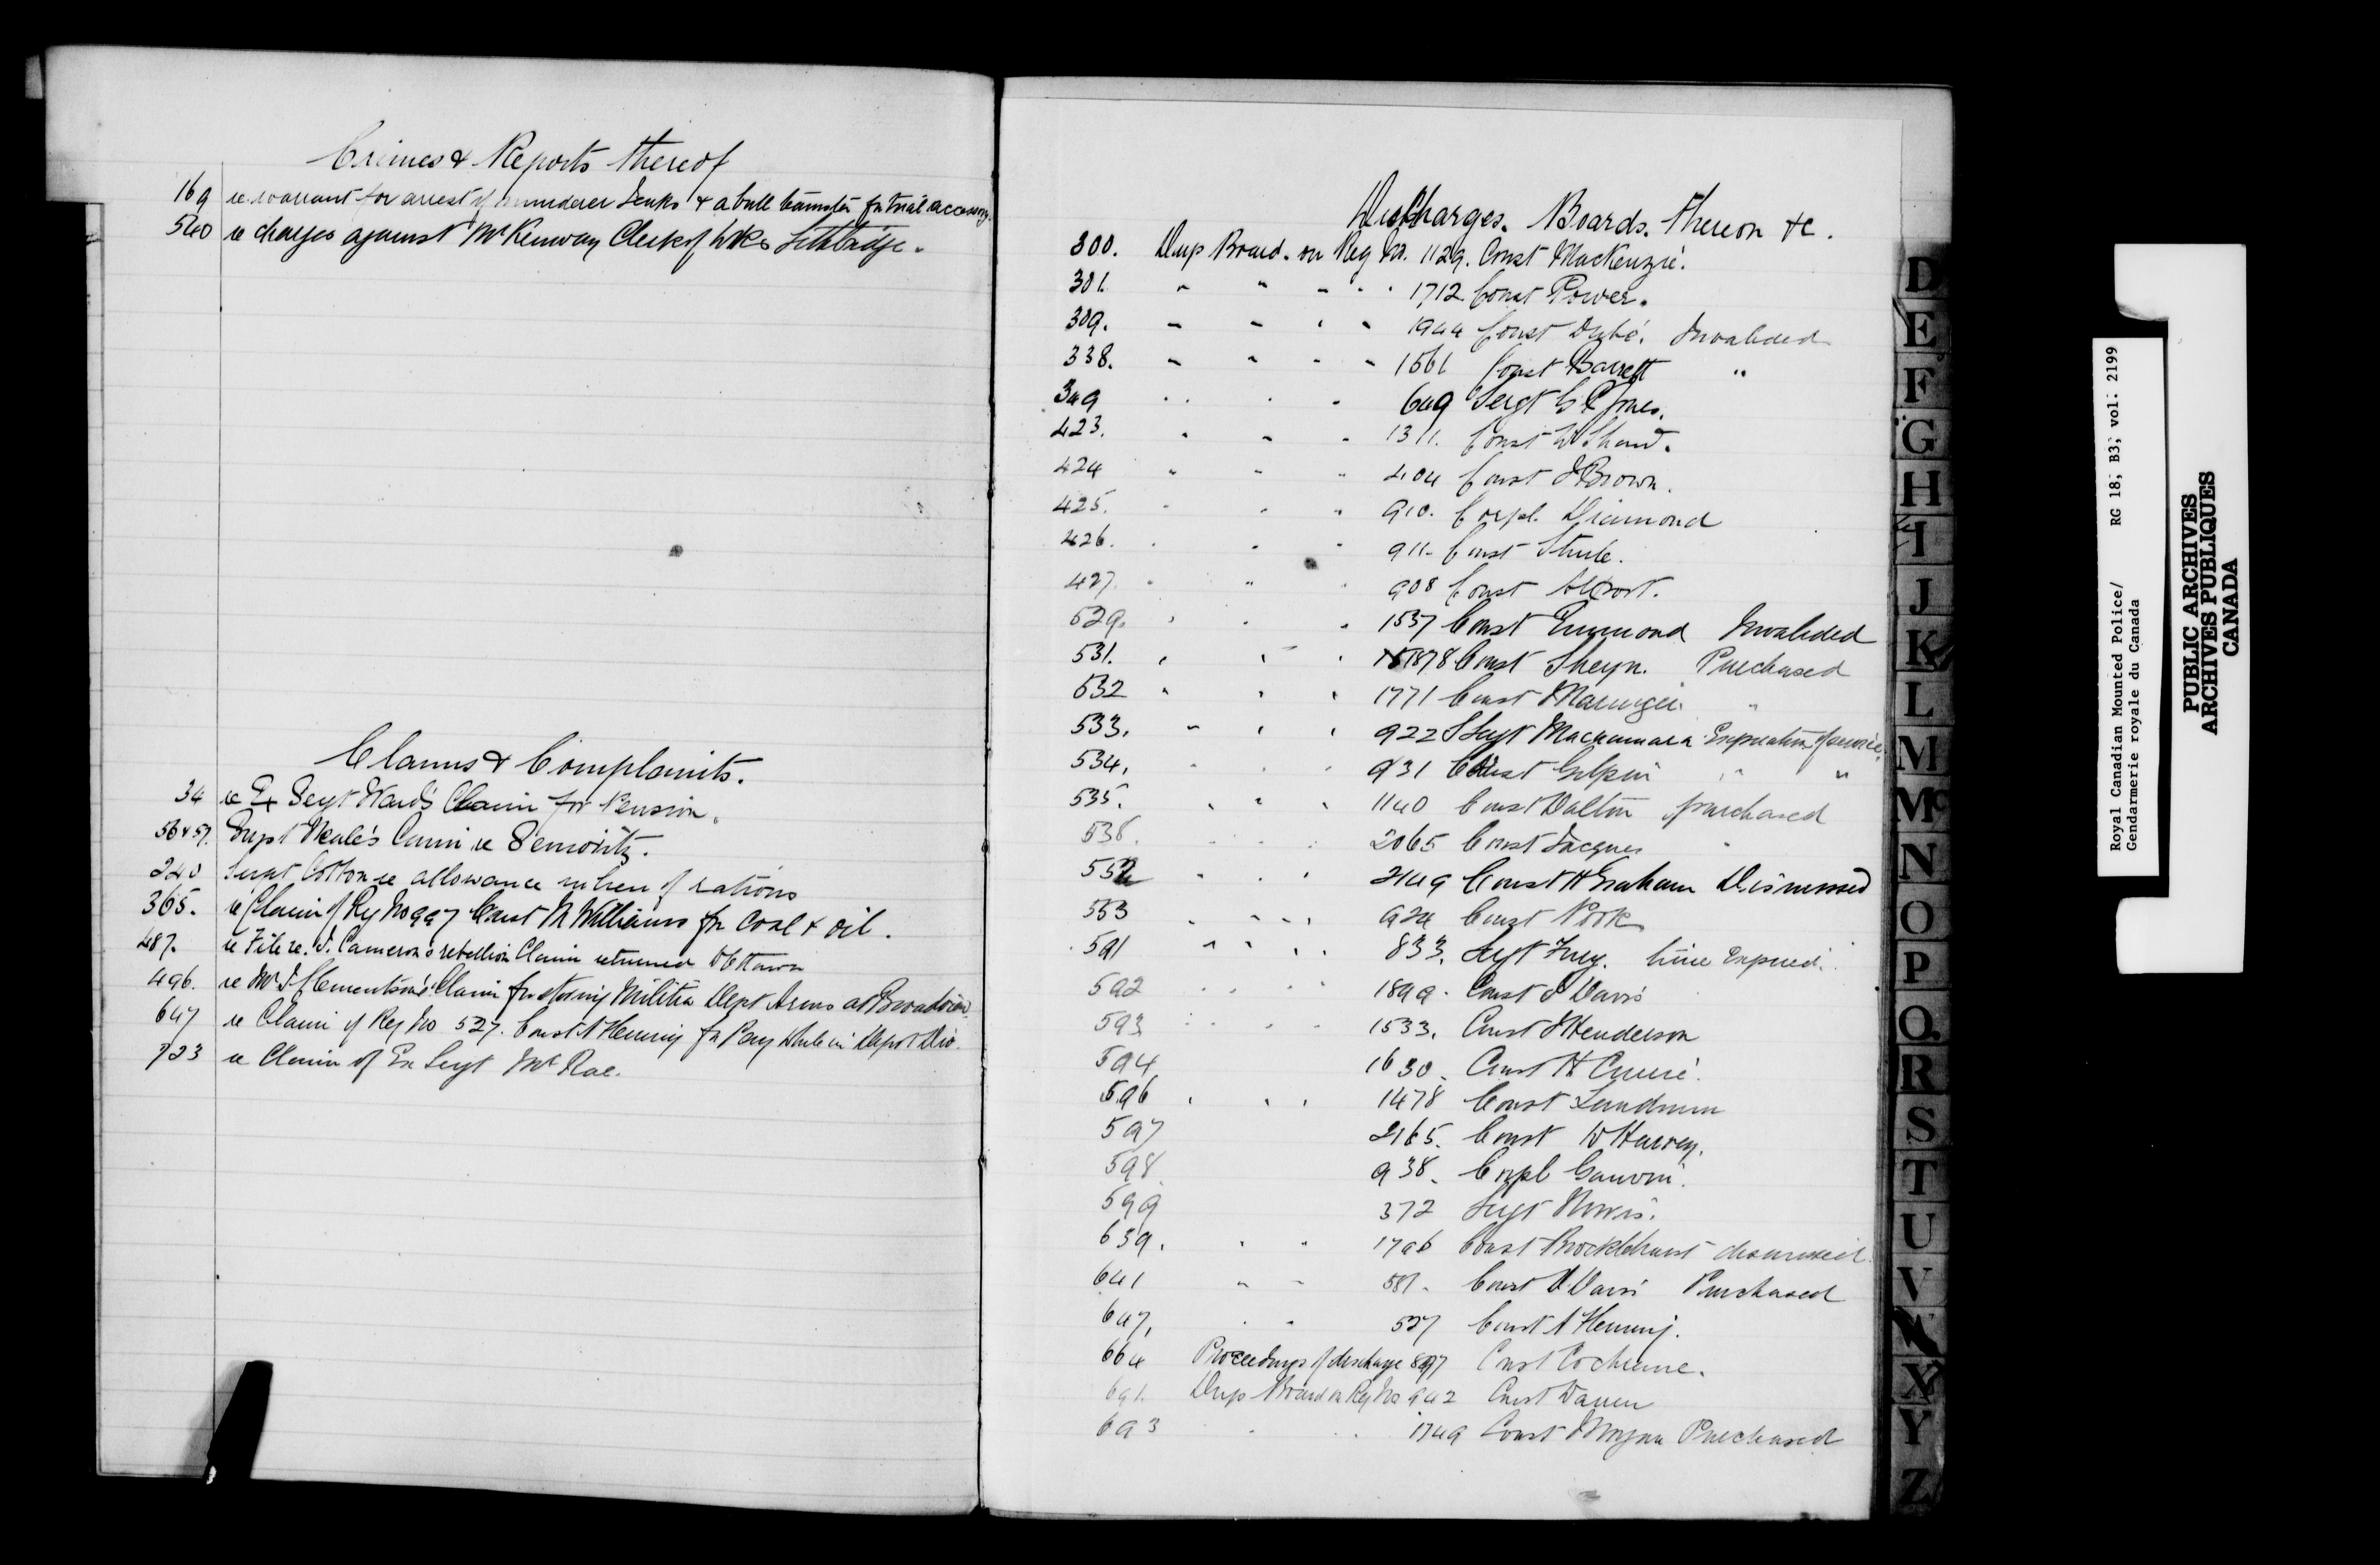 Crimes & Reports thereof
169 re warrant for arrest of murderer Jenks & a bull teamster for trial accessory
540 re charges against Mr Kenway Clerk of Wks Lethbridge.
Claims & Complaints.
34 re Ex Sergt Ward's Claim for Pension.
56 & 57. Supt Neale's Comn re Seniority.
240 Supt Cotton re allowance in lieu of rations
365. re Claim of Reg No 997 Const M Williams for Coal & Oil.
487. re File re. D. Cameron's rebellion Claim returned to Ottawa
496. re Mr J Clementson's Claim for storing Militia Dept Arms at Broadview
647 re Claim of Reg No 527. Const A Heming for Pay while in Depot Div.
723 re Claim of Ex Sergt McRae.
Discharges. Boards. Thereon &c.
300. Dup Board. on Reg No. 1129. Const MacKenzie.
301. " " " " 1712 Const Power.
309. " " " " 1944 Const Dubé. Invalided
338. " " " " 1561 Const Barrett "
349 " " " 649 Sergt G P Jones.
423. " " " 1311. Const W Shaw.
424 " " " 404 Const J Brown.
425. " " " 910. Corpl. Diamond
426. " " " 911. Const
427. " " " 908 Const
529. " " " 1537 Const Emmond Invalided
531. " " " 1878 Const Sheyn. Purchased
532 " " " 1771 Const "
533. " " " 922 S Sergt Macnamara Expiration of service
534. " " " 931 Const Gilpin " "
535. " " " 1140 Const Dalton purchased
538. " " " 2065 Const Jacques "
552 " " " 2149 Const H Graham Dismissed
553 " " " " 924 Const Pook
591 " " " " 833. Sergt Fury. time Expired.
592 " " " " 1899. Const J Davis
593 " " " " 1533. Const J Henderson
594 1630. Const H Currie.
596 " " " 1478 Const Landrum
597 2165. Const W Harvey.
598 938. Corpl Gauvin.
599 372 Sergt Norris.
639. " " 1796 Const Brocklehurst dismissed
641 " " 581. Const D Davis Purchased
647. " " 527 Const A Heming.
664 Proceedings of discharge 897 Const Cochrane.
691. Dup Board on Reg No 942 Const Warren
693 " " 1749 Const Morgan Purchased
D
E
F
G
H
I
J
K
L
M
Mc
N
O
P
Q
R
S
T
U
V
W
X
Y
Z
Royal Canadian Mounted Police/ RG 18, B3, vol: 2199
Gendarmerie royale du Canada
PUBLIC ARCHIVES
ARCHIVES PUBLIQUES
CANADA